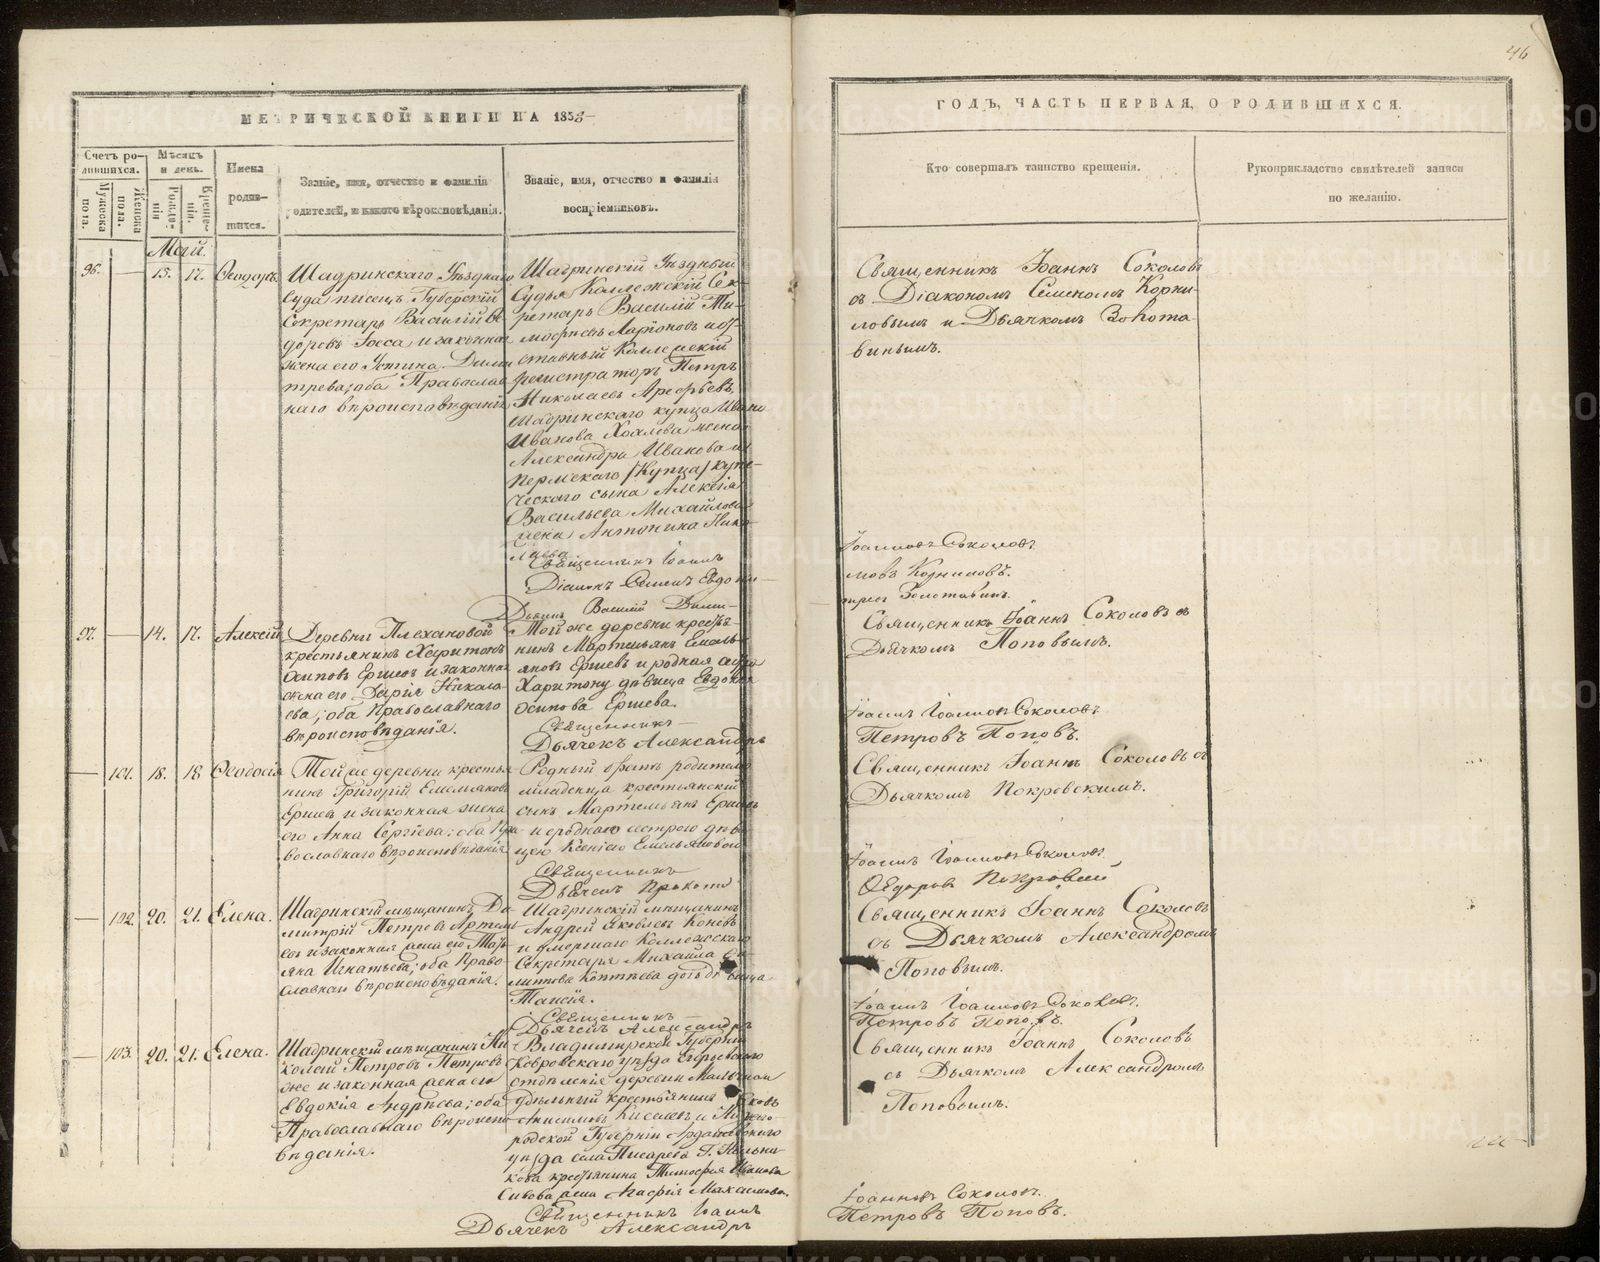 46
МЕТРИЧЕСКОЙ КНИГИ НА 1858
ГОДЪ, ЧАСТЬ ПЕРВАЯ, О РОДИВШИХСЯ.
Счетъ ро-
дившихся.
Мужеска
пола.
Женска
пола.
Мѣсяцъ
и день.
Рожде-
нія
Креще-
нія.
Имена
родив-
шихся.
Званіе, имя, отчество и фамилія
родителей, и какого вѣроисповѣданія.
Званіе, имя, отчество и фамилія
воспріемниковъ.
Кто совершалъ таинство крещенія.
Рукоприкладство свидѣтелей записи
по желанію.
Май.
96. 13. 17. Ѳеодоръ.
Шадринскаго Уѣзднаго
суда писецъ Губерскій
Секретарь Василій Ѳе
доровъ и законная
жена его Устина Дими
трева; оба Православ
наго вѣроисповѣданія
Шадринскій Уѣздный
Судья Коллежскій Сек-
ретарь Василій Ти-
моѳеевъ Ларіоновъ и от-
ставный Коллежскій
регистраторъ Петръ
Николаевъ Арефьевъ,
Шадринскаго купца Ивана
Иванова жена
Александра Иванова и
Пермскаго (Купца) купе-
ческаго сына Алексія
Васильева Михайлова
жена Антонина Нико-
лаева
Священникъ Іоаннъ
Діаконъ Семенъ Евдоки
Дьячекъ Василій Дими-
Священникъ Іоаннъ Соколовъ
съ Діакономъ Семеномъ Корни-
ловымъ и Дьячкомъ Золота-
винымъ.
Іоанновъ Соколовъ.
мовъ Корниловъ.
тріев Золотавинъ.
97. 14. 17. Алексій
Деревни Плехановой
крестьянинъ Харитонъ
Осиповъ Ершевъ и законная
жена его Дарія Никола-
ева; оба Православнаго
вѣроисповѣданія.
Той же деревни кресть-
нинъ Мартемьянъ Емель-
яновъ Ершевъ и родная сестра
Харитону дѣвица Евдокія
Осипова Ершева.
Священникъ
Дьячекъ Александръ
Священникъ Іоаннъ Соколовъ съ
Дьячкомъ Поповымъ.
Іоаннъ Іоанновъ Соколовъ.
Петровъ Поповъ.
101. 18. 18 Ѳеодосія
Той же деревни крестья
нинъ Григорій Емельяновъ
Ершевъ и законная жена
его Анна Сергіева; оба Пра
вославнаго вѣроисповѣданія
Родный братъ родителя
младенца крестьянскій
сынъ Мартемьянъ Ершевъ
и сродною сестрою дѣви
цею Ксеніею Емельяновой
Священникъ
Дьячекъ Прокопій
Священникъ Іоаннъ Соколовъ съ
Дьячкомъ Покровскимъ.
Іоаннъ Іоанновъ Соколовъ.
Ѳедоровъ Покровскій
102. 20. 21. Елена.
Шадринскій мѣщанинъ Ди-
митрій Петровъ Артемь
евъ и законная жена его Тать
яна Игнатьева; оба Право-
славнаго вѣроисповѣданія.
Шадринскій мѣщанинъ
Андрей Яковлевъ Коневъ
и умершаго Коллежскаго
Секретаря Михаила
дочь дѣвица
Таисія.
Священникъ
Дьячекъ Александръ
Священникъ Іоаннъ Соколовъ
съ Дьячкомъ Александромъ
Поповымъ.
Іоаннъ Іоанновъ Соколовъ.
Петровъ Поповъ.
103. 20. 21. Елена.
Шадринскій мѣщанинъ Ни
колай Петровъ Петровъ
же и законная жена его
Евдокія Андреева; оба
Православнаго вѣроиспо
вѣданія.
Владимірской Губерніи
Ковровскаго уѣзда Егорьевскаго
отдѣленія деревни
удѣльный крестьянинъ Яковъ
Анисимовъ Киселевъ и Нижего-
родской Губерніи Ардатовскаго
уѣзда села Писарева Г.
крестьянина Тимофея Иванова
Сивова жена Агафія Максимова.
Священникъ Іоаннъ
Дьячекъ Александръ
Священникъ Іоаннъ Соколовъ
съ Дьячкомъ Александромъ
Поповымъ.
Іоанновъ Соколовъ.
Петровъ Поповъ.